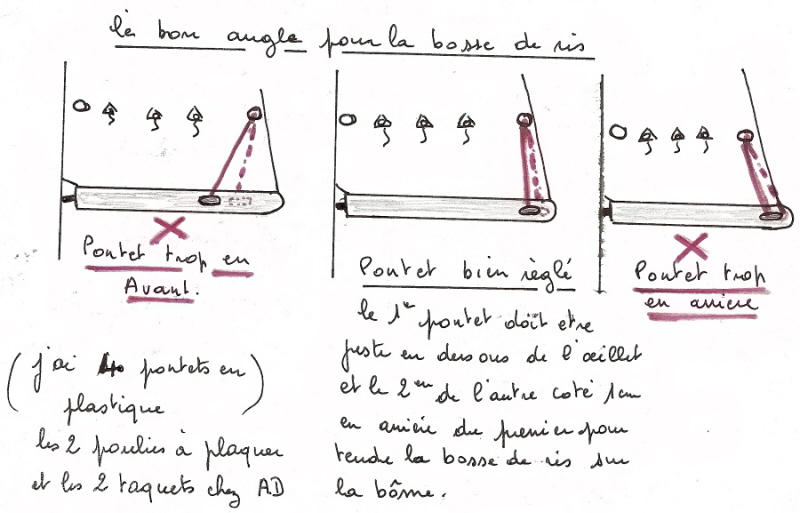 le bon angle pour la bosse de ris
Pontet trop en
Avant.
Pontet bien règlé
le 1er pontet doit etre
juste en dessous de l'œillet
et le 2em de l'autre coté 1cm
en arrière du premier pour
tendre la bosse de ris sur
la bôme.
Pontet trop
en arriere
(j'ai 4 pontets en)
plastique
les 2 poulies à plaquer
et les 2 taquets chez AD